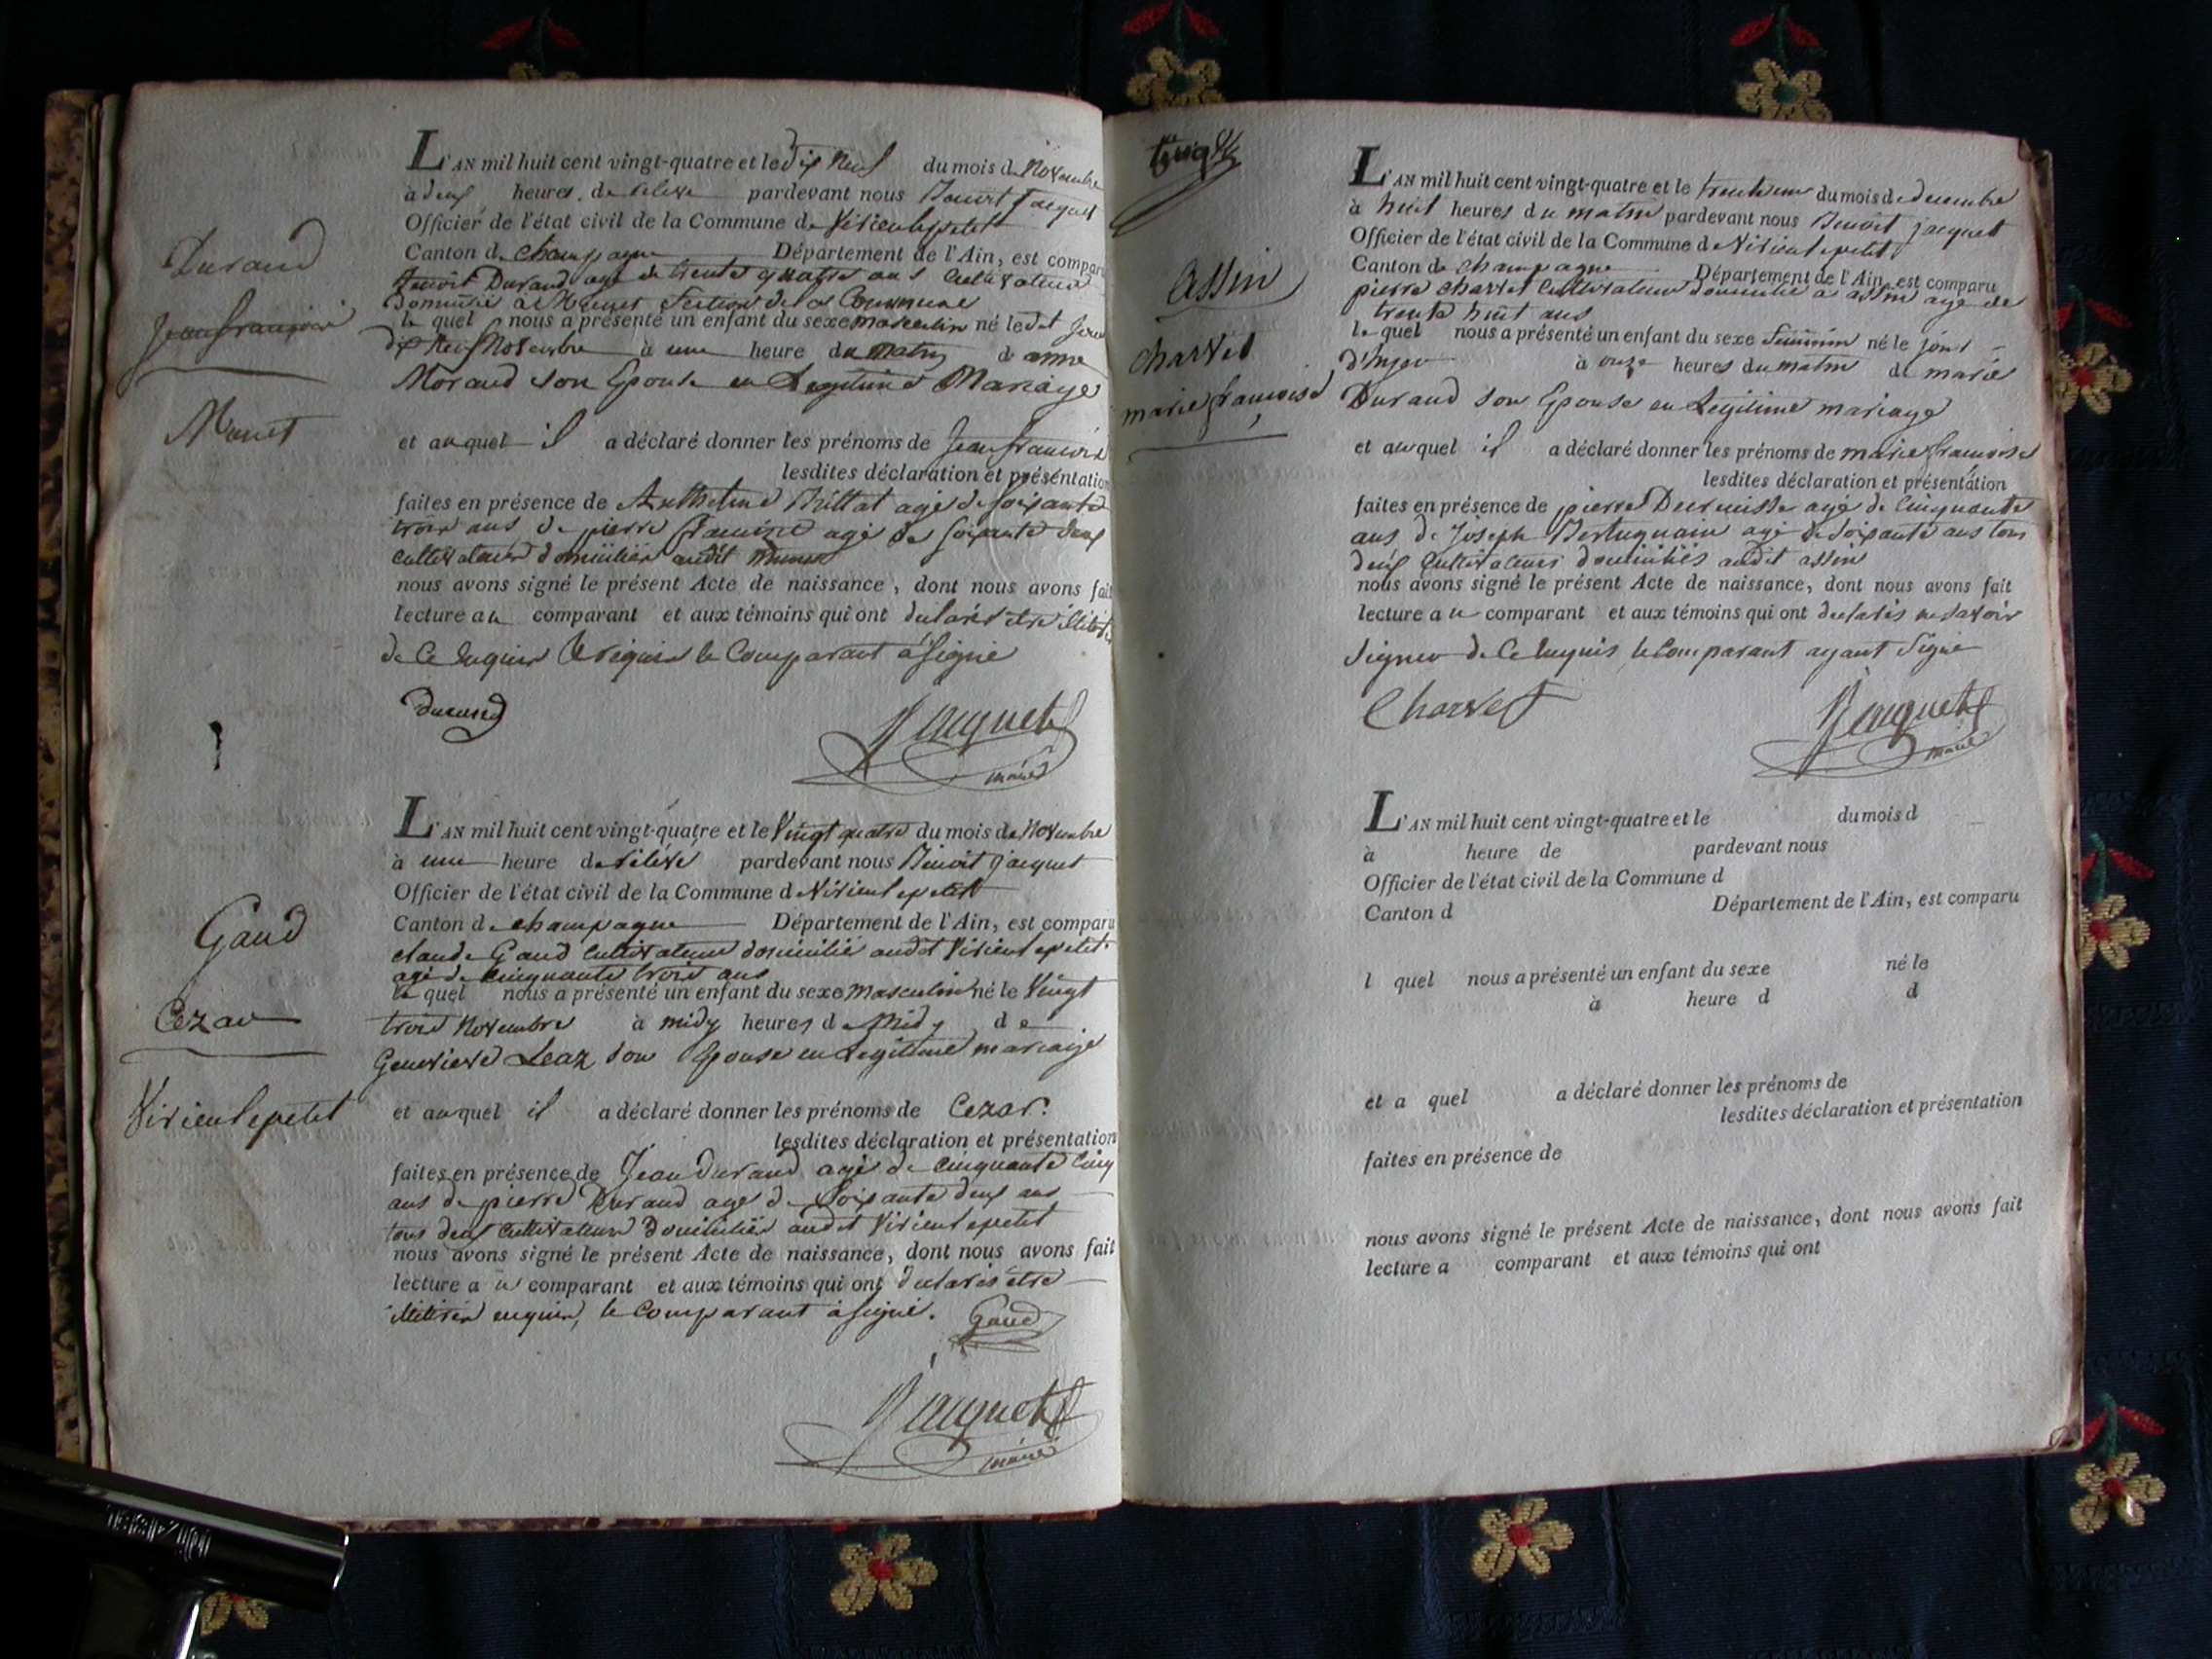 Durand
Jean françois
Munet
L'AN mil huit cent vingt-quatre et le dix neuf du mois de Novembre
à deux heures de relevé pardevant nous Benoit Jacquet
Officier de l'état civil de la Commune de Virieulepetit
Canton de champagne Département de l'Ain, est comparu
Benoit Durand agé de trente quatre ans Cultivateur
Domicilié a Munet Section de la Commune
le quel nous a présenté un enfant du sexe masculin né le dit jour
dix Neuf Novembre à une heure du matin de anne
Morand son Epouse en Legitime Mariage
et auquel il a déclaré donner les prénoms de Jean françois
lesdites déclaration et présentation
faites en présence de Anthelme Millat agé de soixante
trois ans de pierre françois agé de soixante deux
cultivateurs domiciliés audit Munet
nous avons signé le présent Acte de naissance, dont nous avons fait
lecture au comparant et aux témoins qui ont declarés etre
de ce enquis le Comparant à signé
Durand
Jacquet
maire
Gaud
Cezar
Virieulepetit
L'AN mil huit cent vingt-quatre et le Vingt quatre du mois de Novembre
à une heure de relévé pardevant nous Benoit Jacquet
Officier de l'état civil de la Commune de Virieulepetit
Canton de champagne Département de l'Ain, est comparu
claude Gaud cultivateur domicilié audit Virieulepetit
agé de cinquante trois ans
le quel nous a présenté un enfant du sexe masculin né le Vingt
trois Novembre à midy heures de Midy de
Genevieve Leaz son Epouse en Legitime mariage
et auquel il a déclaré donner les prénoms de Cezar.
lesdites déclaration et présentation
faites en présence de Jean Durand agé de cinquante cinq
ans de pierre Durand agé de Soixante deux ans
tous deux cultivateurs domiciliés audit Virieulepetit
nous avons signé le présent Acte de naissance, dont nous avons fait
lecture au comparant et aux témoins qui ont declarés etre
illitirés enquis, le Comparant à signé. Gaud
Jacquet
maire
Assin
Charvet
marie françoise
L'AN mil huit cent vingt-quatre et le trente un du mois de decembre
à huit heures du matin pardevant nous Benoit jacquet
Officier de l'état civil de la Commune de Virieulepetit
Canton de champagne Département de l'Ain, est comparu
pierre charvet Cultivateur domicilié a assin agé de
trente huit ans
le quel nous a présenté un enfant du sexe féminin né le jour
d'hyer à onze heures du matin de marie
Durand son Epouse en Legitime mariage
et auquel il a déclaré donner les prénoms de marie françoise
lesdites déclaration et présentation
faites en présence de pierre agé de Cinquante
ans de Joseph agé de soixante ans tous
deux Cultivateurs domiciliés audit assin
nous avons signé le présent Acte de naissance, dont nous avons fait
lecture au comparant et aux témoins qui ont declarés ne savoir
signer de Ce enquis, le comparant ayant Signé
Charvet
Jacquet
maire
L'AN mil huit cent vingt-quatre et le du mois d
à heure de pardevant nous
Officier de l'état civil de la Commune d
Canton d Département de l'Ain, est comparu
l quel nous a présenté un enfant du sexe né le
à heure d d
et a quel a déclaré donner les prénoms de
lesdites déclaration et présentation
faites en présence de
nous avons signé le présent Acte de naissance, dont nous avons fait
lecture a comparant et aux témoins qui ont